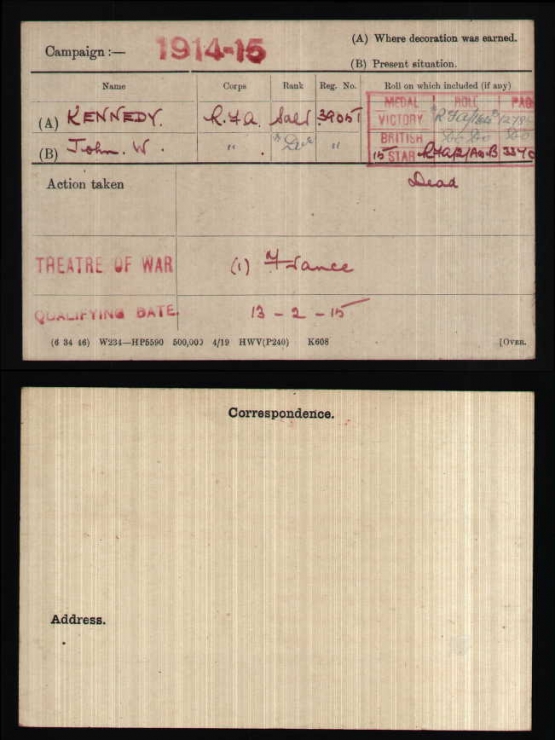 (A) Where decoration was earned.
Campaign :— 1914-15
(B) Present situation.
Name Corps Rank Reg. No. Roll on which included (if any)
MEDAL ROLL PAGE
(A) KENNEDY. R.F.A. 39051 VICTORY
BRITISH
(B) John. W. " " 15 STAR
Action taken Dead
THEATRE OF WAR (1) France
QUALIFYING DATE. 13 - 2 - 15
(6 34 46) W234—HP5590 500,000 4/19 HWV(P240) K608 [OVER.
Correspondence.
Address.